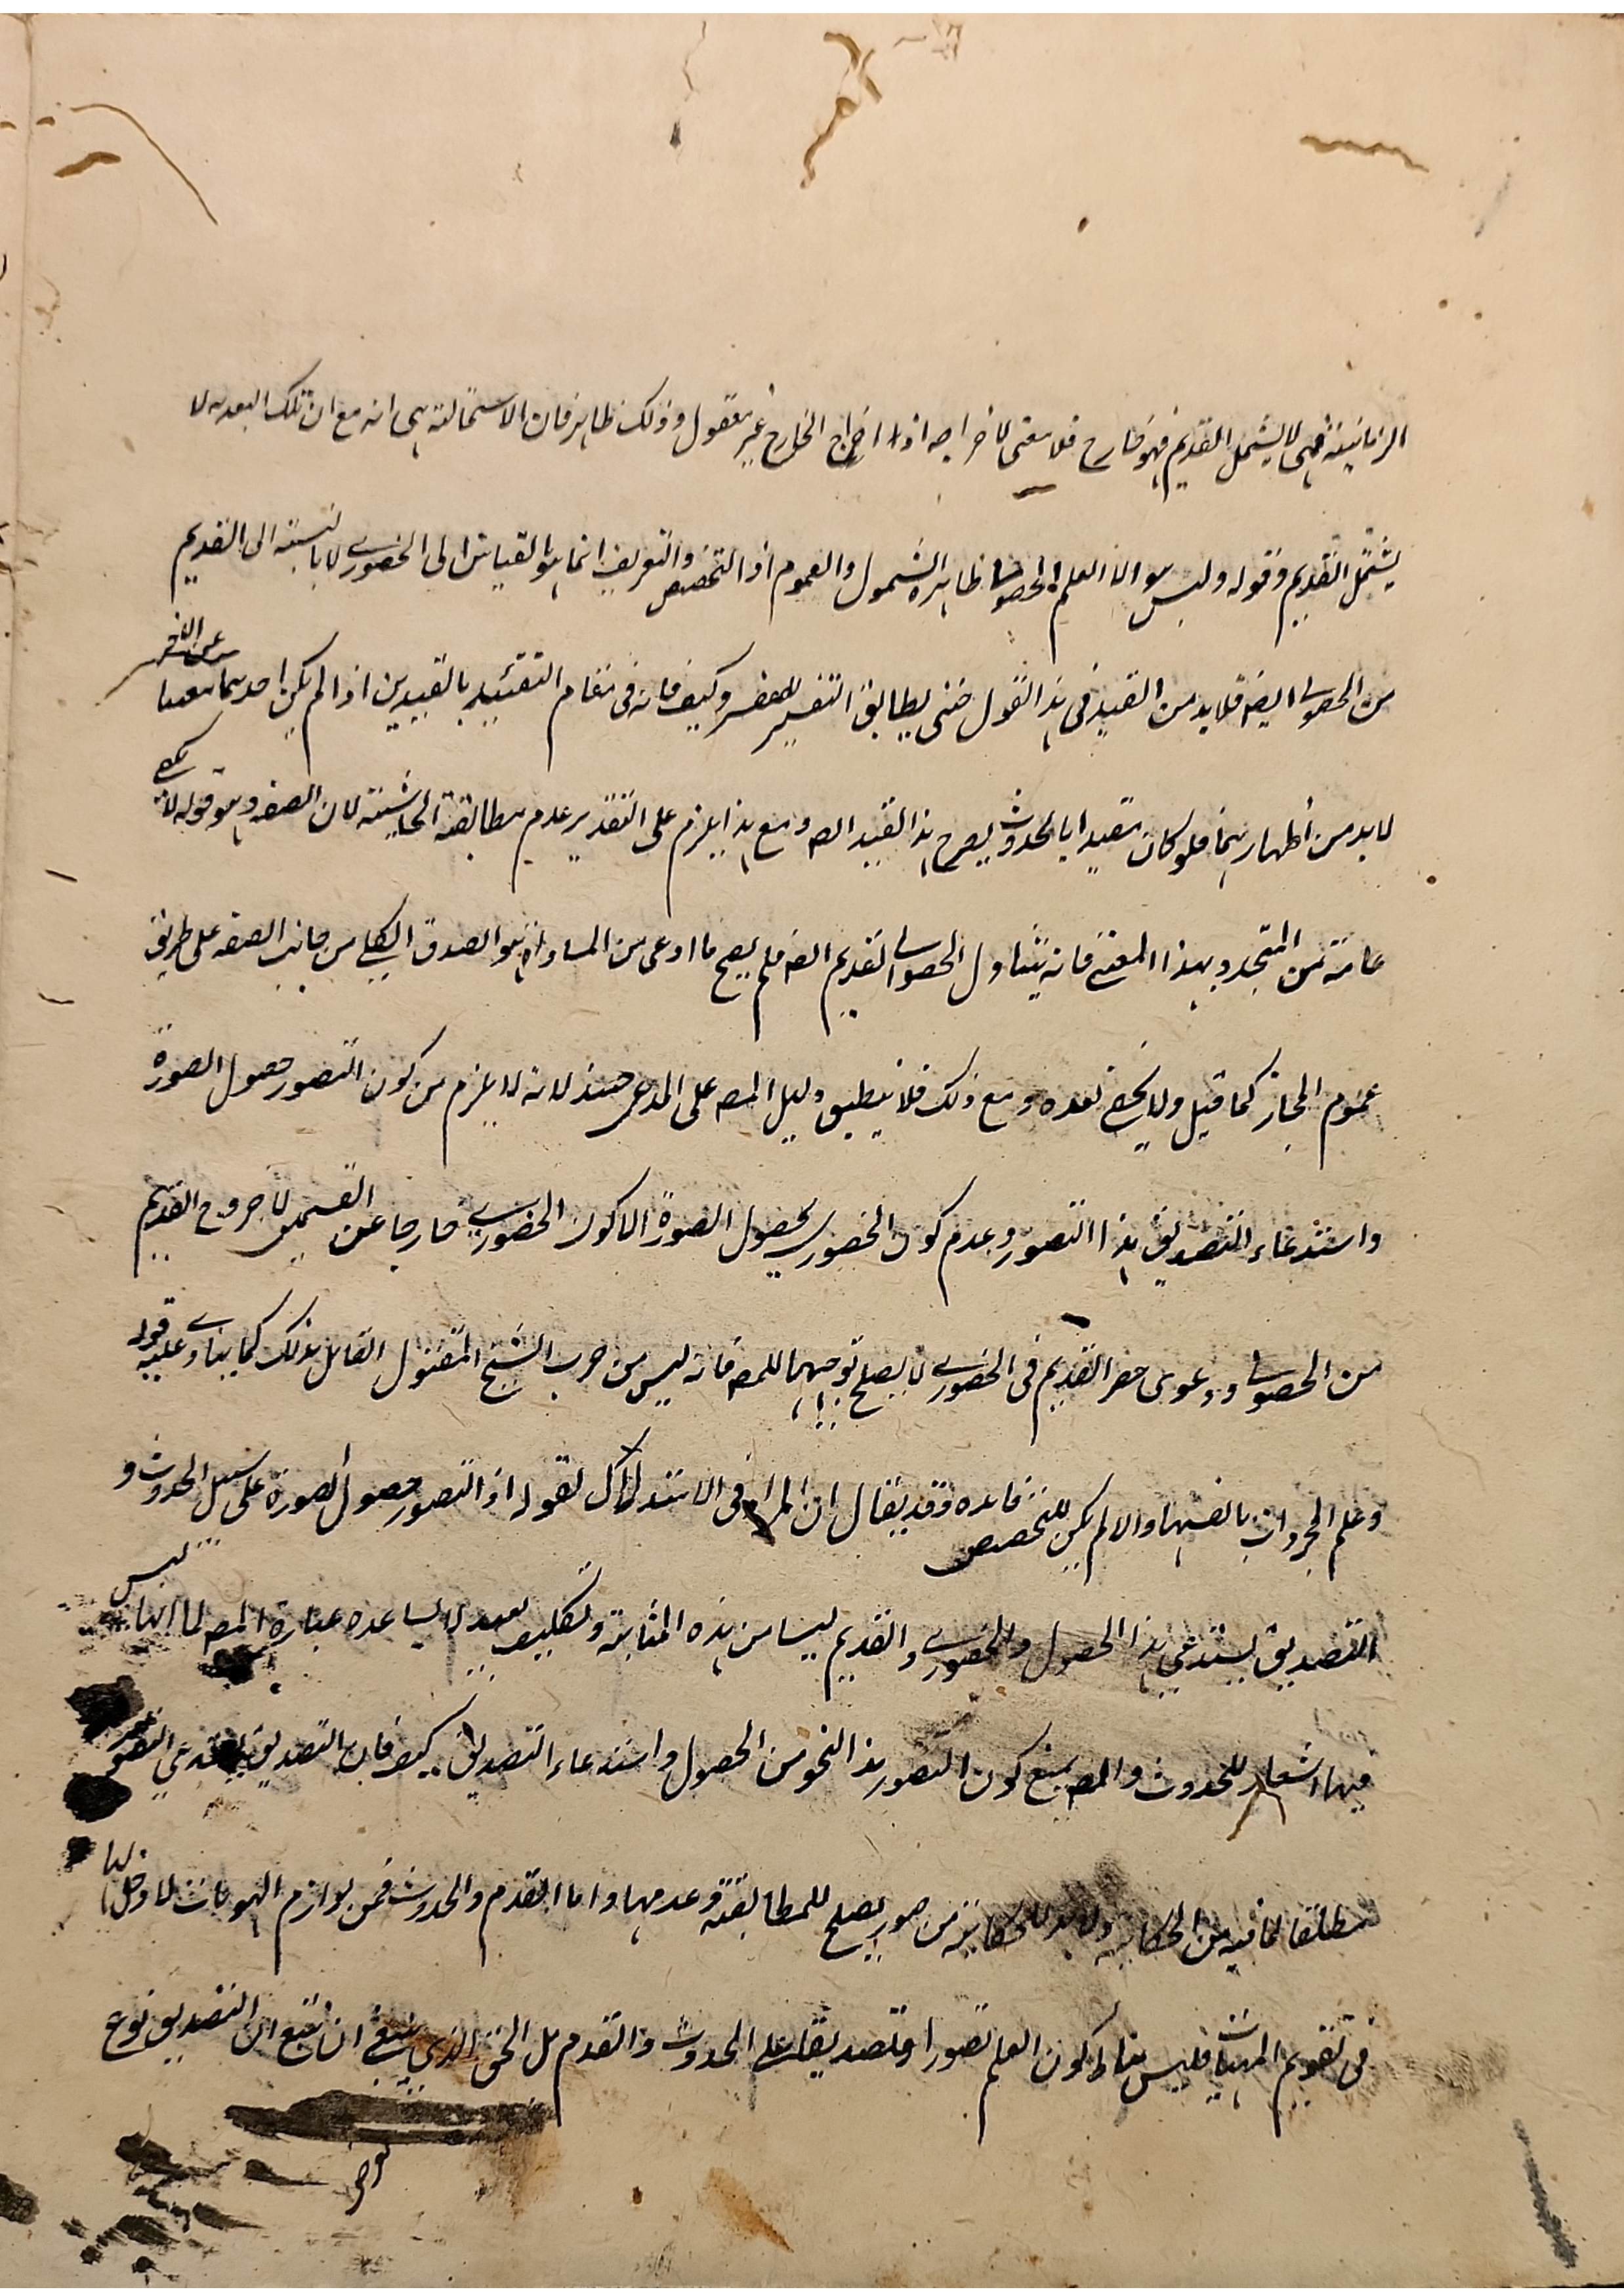 الزمانية فهى لا يشمل القديم فهو خارج فلا معنى لاخراجه اذ اخراج الخارج غير معقول وذلك ظاهر فان الاستحالة هى انه مع ان تلك البعدية لا
يشتمل القديم وقوله وليس هو الا العلم الحصولى ظاهره الشمول والعموم اذ التخصيص والتعريف انما هو بالقياس الى الحضورى لا بالنسبة الى القديم
من الحصولى ايضا فلابد من القيد فى هذا القول حتى يطابق التفسير المفسر وكيف فانه فى مقام التقييد بالقيدين اذا لم يكن احدهما مغنيا عن الاخر
لابد من اظهارهما فلو كان مقيدا بالحدوث يصرح بهذا القيد ايضا ومع هذا يلزم على التقدير عدم مطابقة الحاشية لان الصفة وهو قوله لا يكفى
عامة من المتجدد بهذا المعنى فانه يتناول الحصولى القديم ايضا فلم يصح ما ادعى من المساواة هو الصدق الكلى من جانب الصفة على طريق
عموم المجاز كما قيل ولا يخفى بعده ومع ذلك فلا ينطبق دليل المصـ على المدعى حينئذ لانه لا يلزم من كون التصور حصول الصورة
واستدعاء التصديق هذا التصور وعدم كون الحضورى بحصول الصورة الا كون الحضورى خارجا عن القسمين لا خروج القديم
من الحصولى ودعوى حصر القديم فى الحضورى لا يصلح توجيها للمصـ فانه ليس من حزب الشيخ المقتول القائل بذلك كما ينادى عليه قوله
وعلم المجردات بانفسها والا لم يكن للتخصيص فائده وقد يقال ان المراد فى الاستدلال لقوله اذ التصور حصول الصورة على سبيل الحدوث و
التصديق يستدعى هذا الحصول والحضورى والقديم ليسا من هذه المثابة وتكليف بعيد لا يساعده عبارة المصـ لما انها ليس
فيها اشعار للحدوث والمصـ يمنع كون التصور هذا النحو من الحصول واستدعاء التصديق كيف فان التصديق يستدعى التصور
مطلقا لما فيه من الحكاية ولابد للحكاية من صور يصلح للمطابقة وعدمها واما القدم والحدوث فمن لوازم الهويات لا دخل لها
فى تقويم المهيات فليس مناط كون العلم تصورا وتصديقا على الحدوث والقدم بل الحق الذى ينبغى ان يتبع ان التصديق نوع